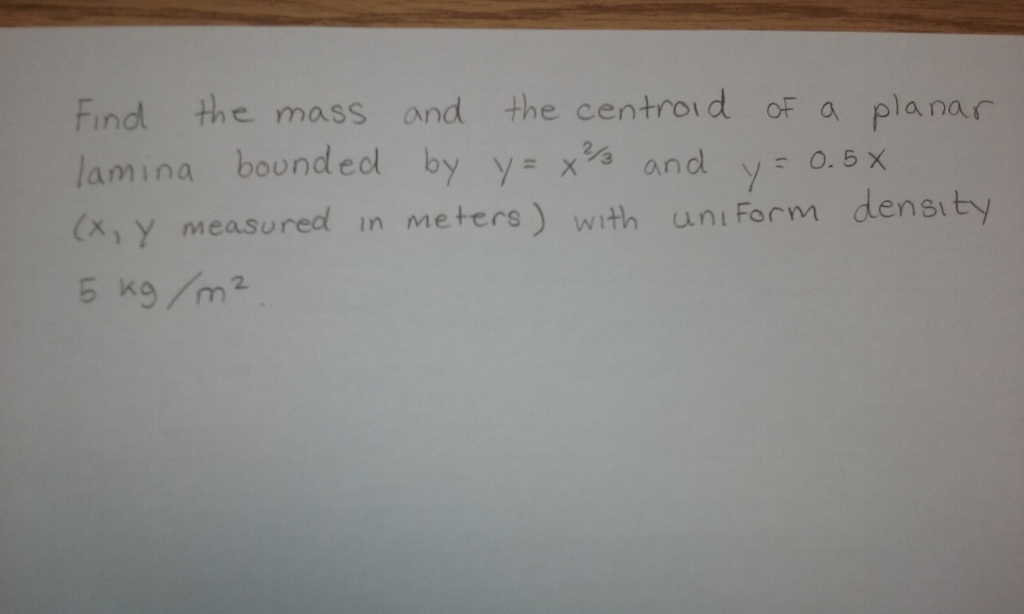 Find the mass and the centroid of a planar
lamina bounded by y = x^(2/3) and y = 0.5x
(x, y measured in meters) with uniform density
5 kg/m².